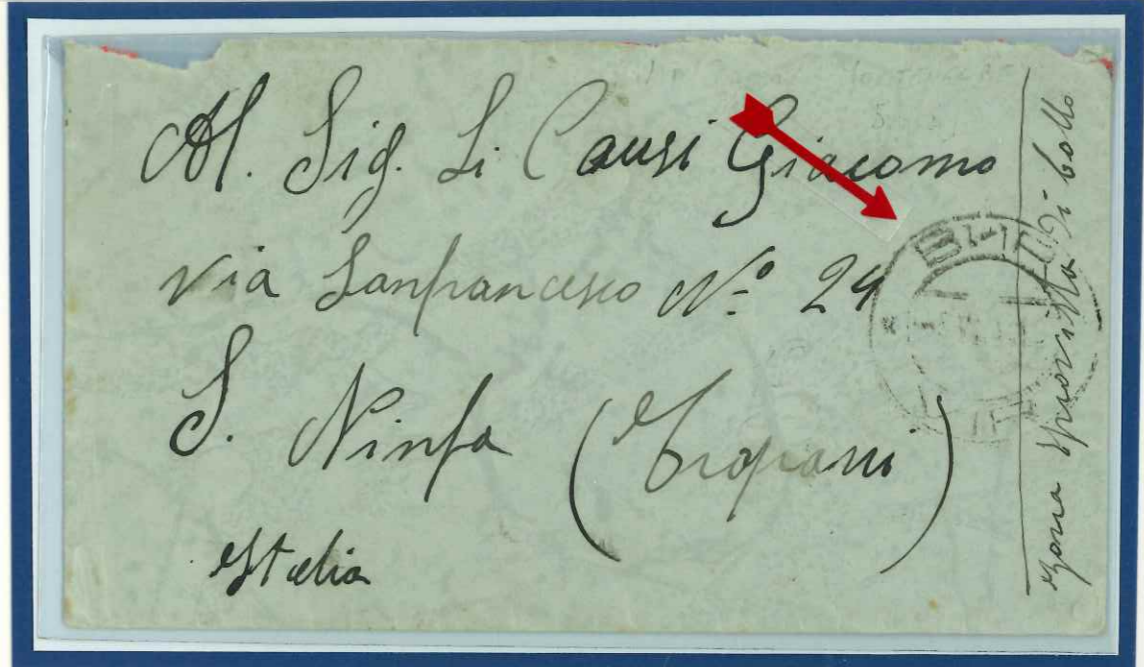 Al. Sig. Li Causi Giacomo
via Sanfrancesco N.º 29
S. Ninfa (Trapani)
Italia
Zona sprovvista di bollo